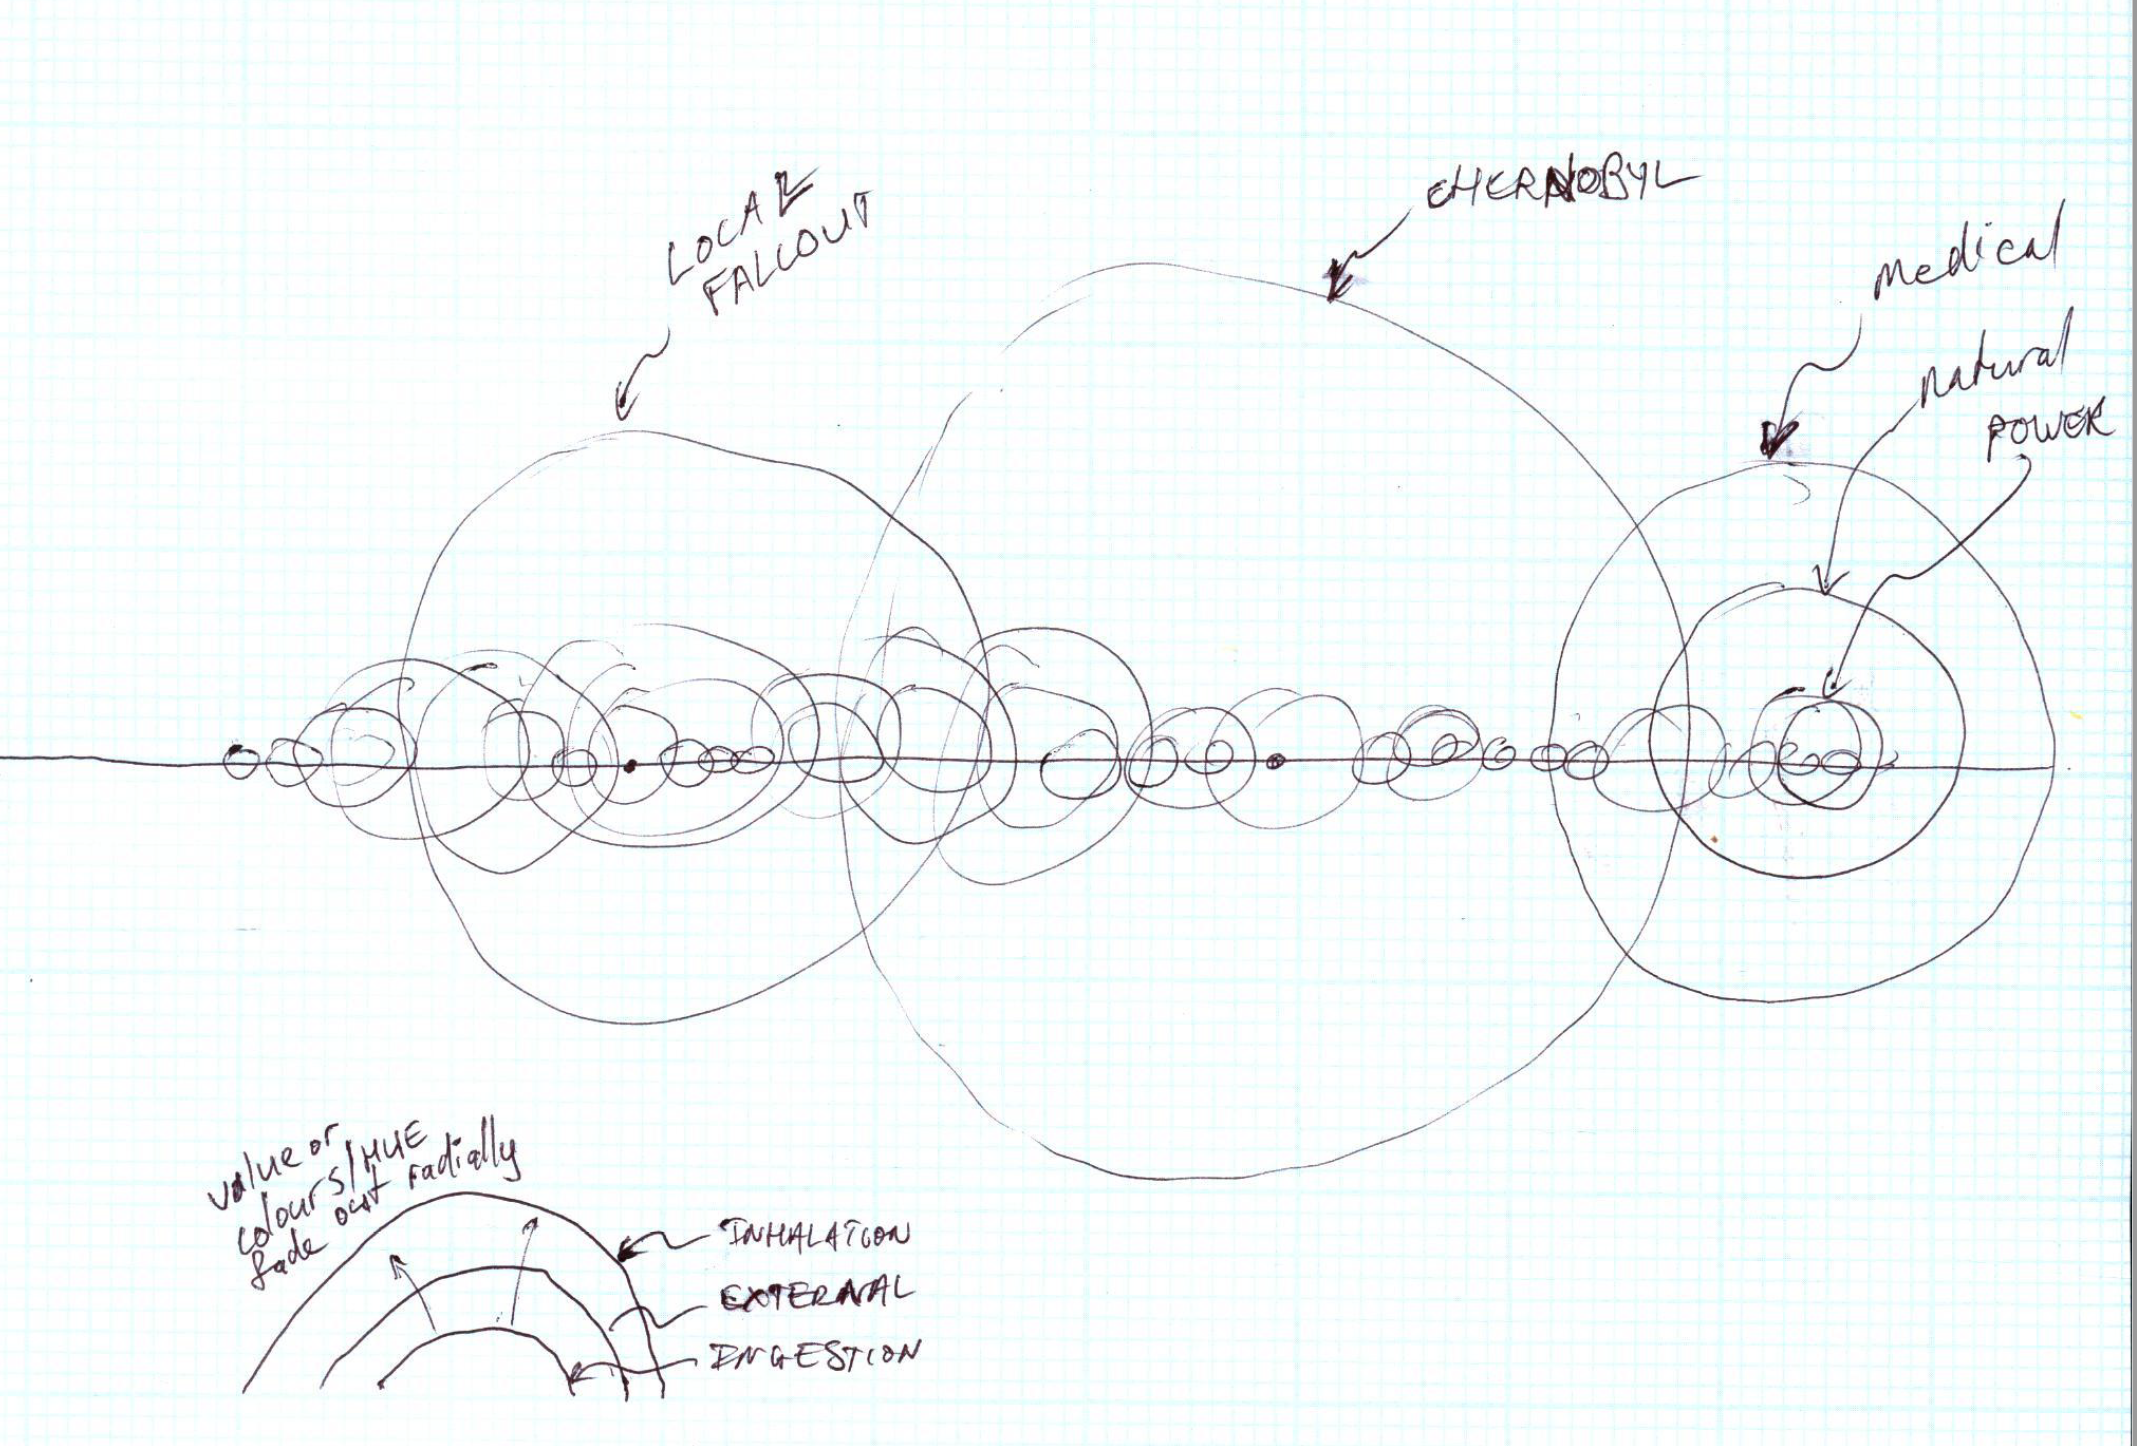 LOCAL
FALLOUT
CHERNOBYL
Medical
natural
POWER
value or
colours/HUE
fade out radially
INHALATION
EXTERNAL
INGESTION